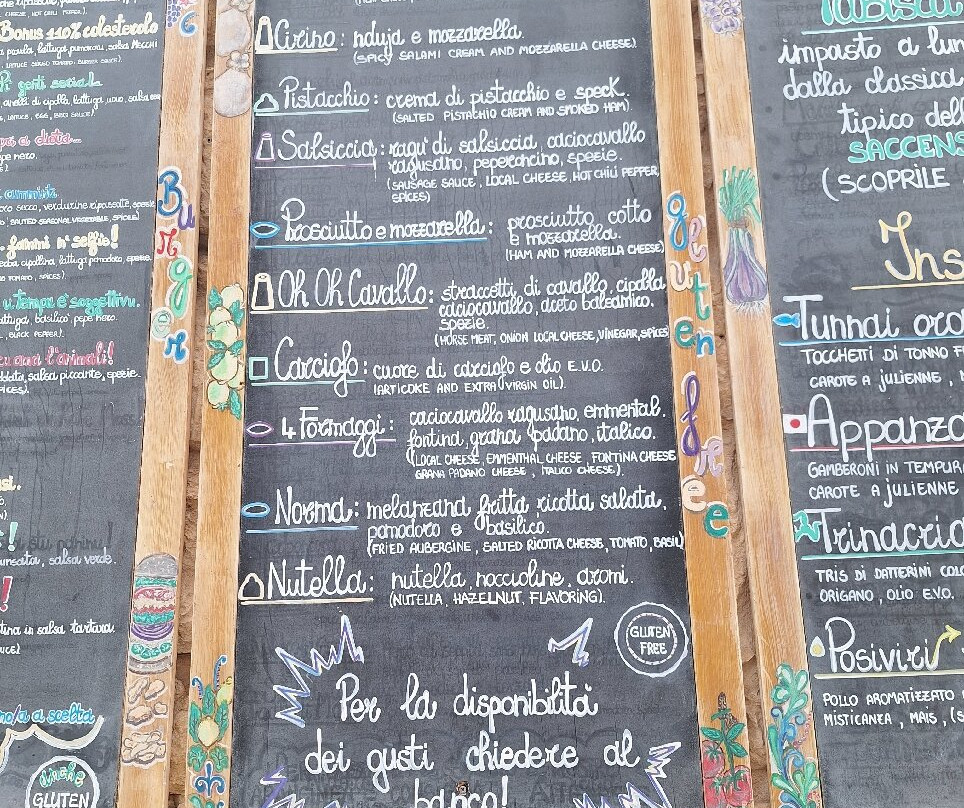 Bonus 110% colesterolo
gusti sociale
pe nero.
Burger
lattuga, basilico, pepe nero.
BLACK PEPPER).
salsa piccante, spezie.
salsa verde.
in salsa tartara.
a scelta
anche
GLUTEN
Cirino: nduja e mozzarella.
(SPICY SALAMI CREAM AND MOZZARELLA CHEESE).
Pistacchio: crema di pistacchio e speck.
(SALTED PISTACHIO CREAM AND SMOKED HAM)
Salsiccia: ragu' di salsiccia, caciocavallo
ragusano, peperoncino, spezie.
(SAUSAGE SAUCE, LOCAL CHEESE, HOT CHILI PEPPER,
SPICES)
Prosciutto e mozzarella: prosciutto cotto
e mozzarella.
(HAM AND MOZZARELLA CHEESE)
Oh Oh Cavallo: straccetti di cavallo, cipolla
caciocavallo, aceto balsamico.
spezie.
(HORSE MEAT, ONION LOCAL CHEESE, VINEGAR, SPICES)
Carciofo: cuore di carciofo e olio E.V.O.
(ARTICOKE AND EXTRA VIRGIN OIL).
4 Formaggi: caciocavallo ragusano, emmental.
fontina, grana padano, italico.
(LOCAL CHEESE, EMMENTHAL CHEESE, FONTINA CHEESE
GRANA PADANO CHEESE, ITALICO CHEESE).
Norma: melanzana fritta, ricotta salata,
pomodoro e basilico
(FRIED AUBERGINE, SALTED RICOTTA CHEESE, TOMATO, BASIL)
Nutella: nutella, noccioline, aromi.
(NUTELLA, HAZELNUT, FLAVORING).
GLUTEN
FREE
Per la disponibilità
dei gusti chiedere al
banco!
gluten free
impasto a lun
dalla classica
tipico dell
SACCENS
(SCOPRILE
Ins
Tunnai
TOCCHETTI DI TONNO
CAROTE A JULIENNE,
Appanza
GAMBERONI IN TEMPUR
CAROTE A JULIENNE
Trinacria
TRIS DI DATTERINI COLO
ORIGANO, OLIO E.V.O.
Posiviri
POLLO AROMATIZZATO
MISTICANZA, MAIS, (S